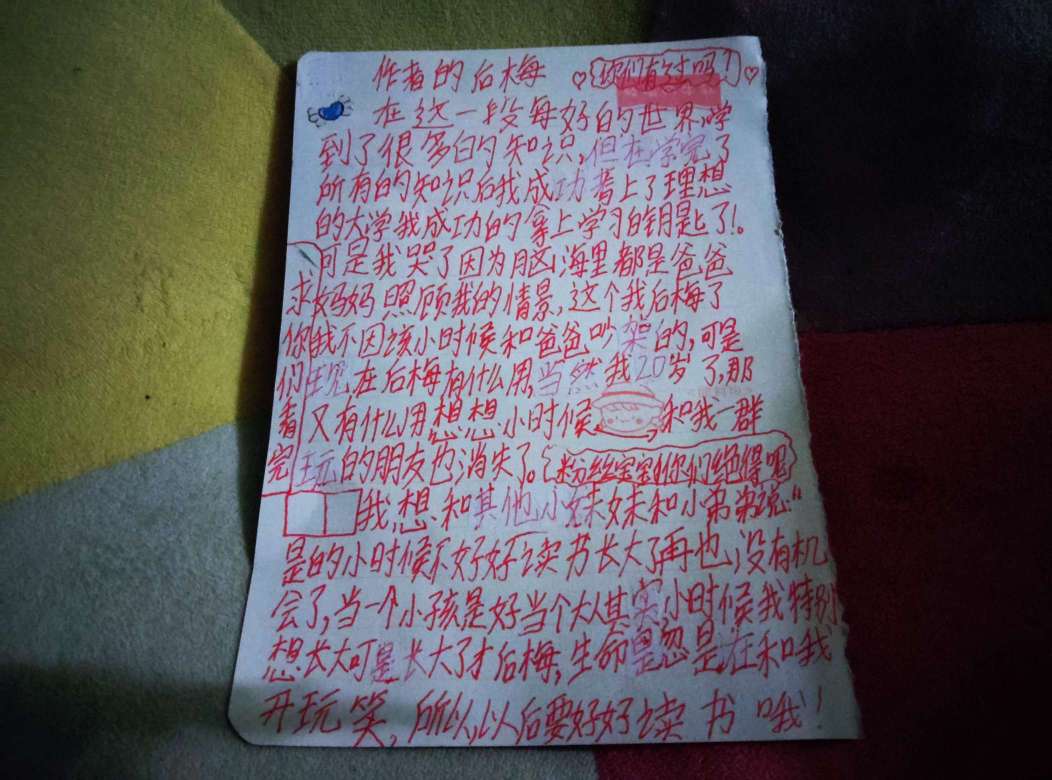 作者的后梅
你们有过吗?
在这一段每好的世界,学
到了很多的知识,但在学完了
所有的知识后我成功考上了理想
的大学我成功的拿上学习的钥匙了!。
可是我哭了因为脑海里都是爸爸
妈妈照顾我的情景,这个我后梅了
我不因该小时候和爸爸吵架的,可是
现在后梅有什么用,当然我20岁了,那
又有什么用想想小时候,和我一群
玩的朋友也消失了。
求你们看完
粉丝宝宝们你们绝得呢
我想和其他小妹妹和小弟弟说“
是的小时候不好好读书长大了再也没有机
会了,当一个小孩是好当个大人其实小时候我特别
想长大可是长大了才后梅,生命是总是在和我
开玩笑,所以,以后要好好读书哦!